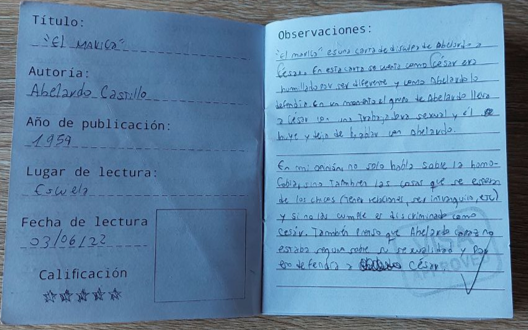 Título:
"El marica"
Autoría:
Abelardo Castillo
Año de publicación:
1959
Lugar de lectura:
Escuela
Fecha de lectura
03/06/22
Calificación
Observaciones:
"El marica" es una carta de disculpas de Abelardo a
César. En esta carta se cuenta como César era
humillado por ser diferente y como Abelardo lo
defendía. En un momento el grupo de Abelardo lleva
a César con una trabajadora sexual y él
huye y deja de hablar con Abelardo.
En mi opinión, no solo habla sobre la homo-
fobia, sino también las cosas que se espera
de los chicos (tener relaciones, ser , etc)
y si no las cumple es discriminado como
César. También pienso que Abelardo no
estaba seguro sobre su sexualidad y por
eso defendía a César